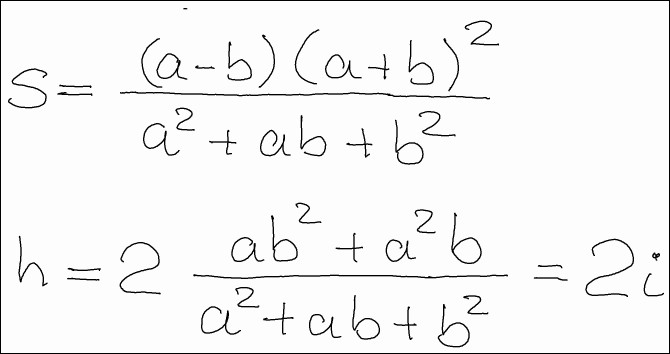 S = \frac{(a-b)(a+b)^2}{a^2+ab+b^2}
h = 2 \frac{ab^2+a^2b}{a^2+ab+b^2} = 2i